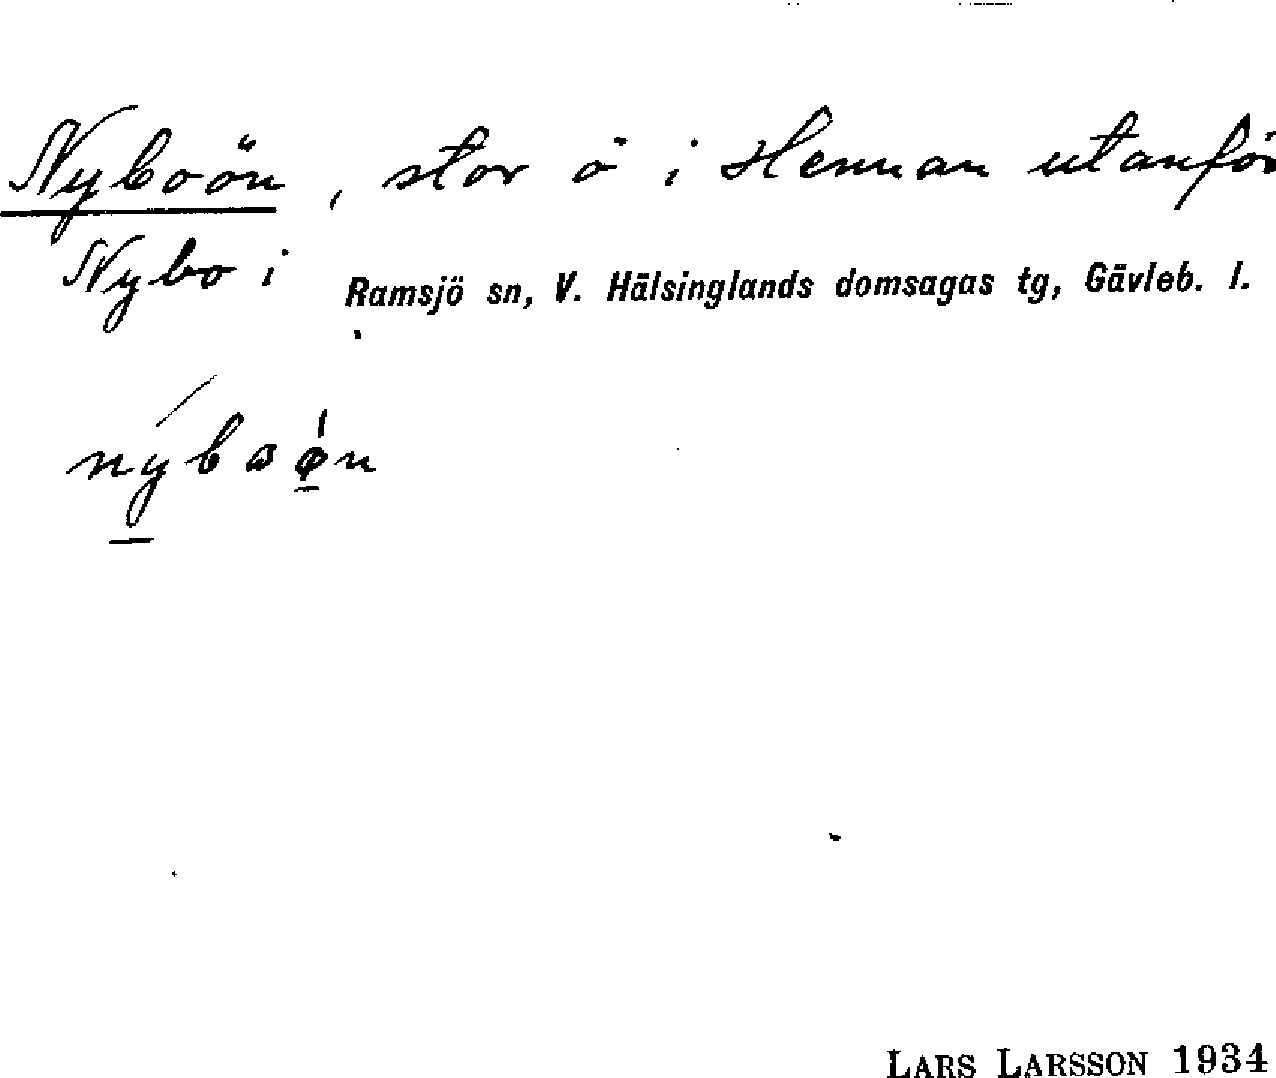 Nyboön, stor ö i Hennan utanför
Nybo i Ramsjö sn, V. Hälsinglands domsagas tg, Gävleb. l.
LARS LARSSON 1934